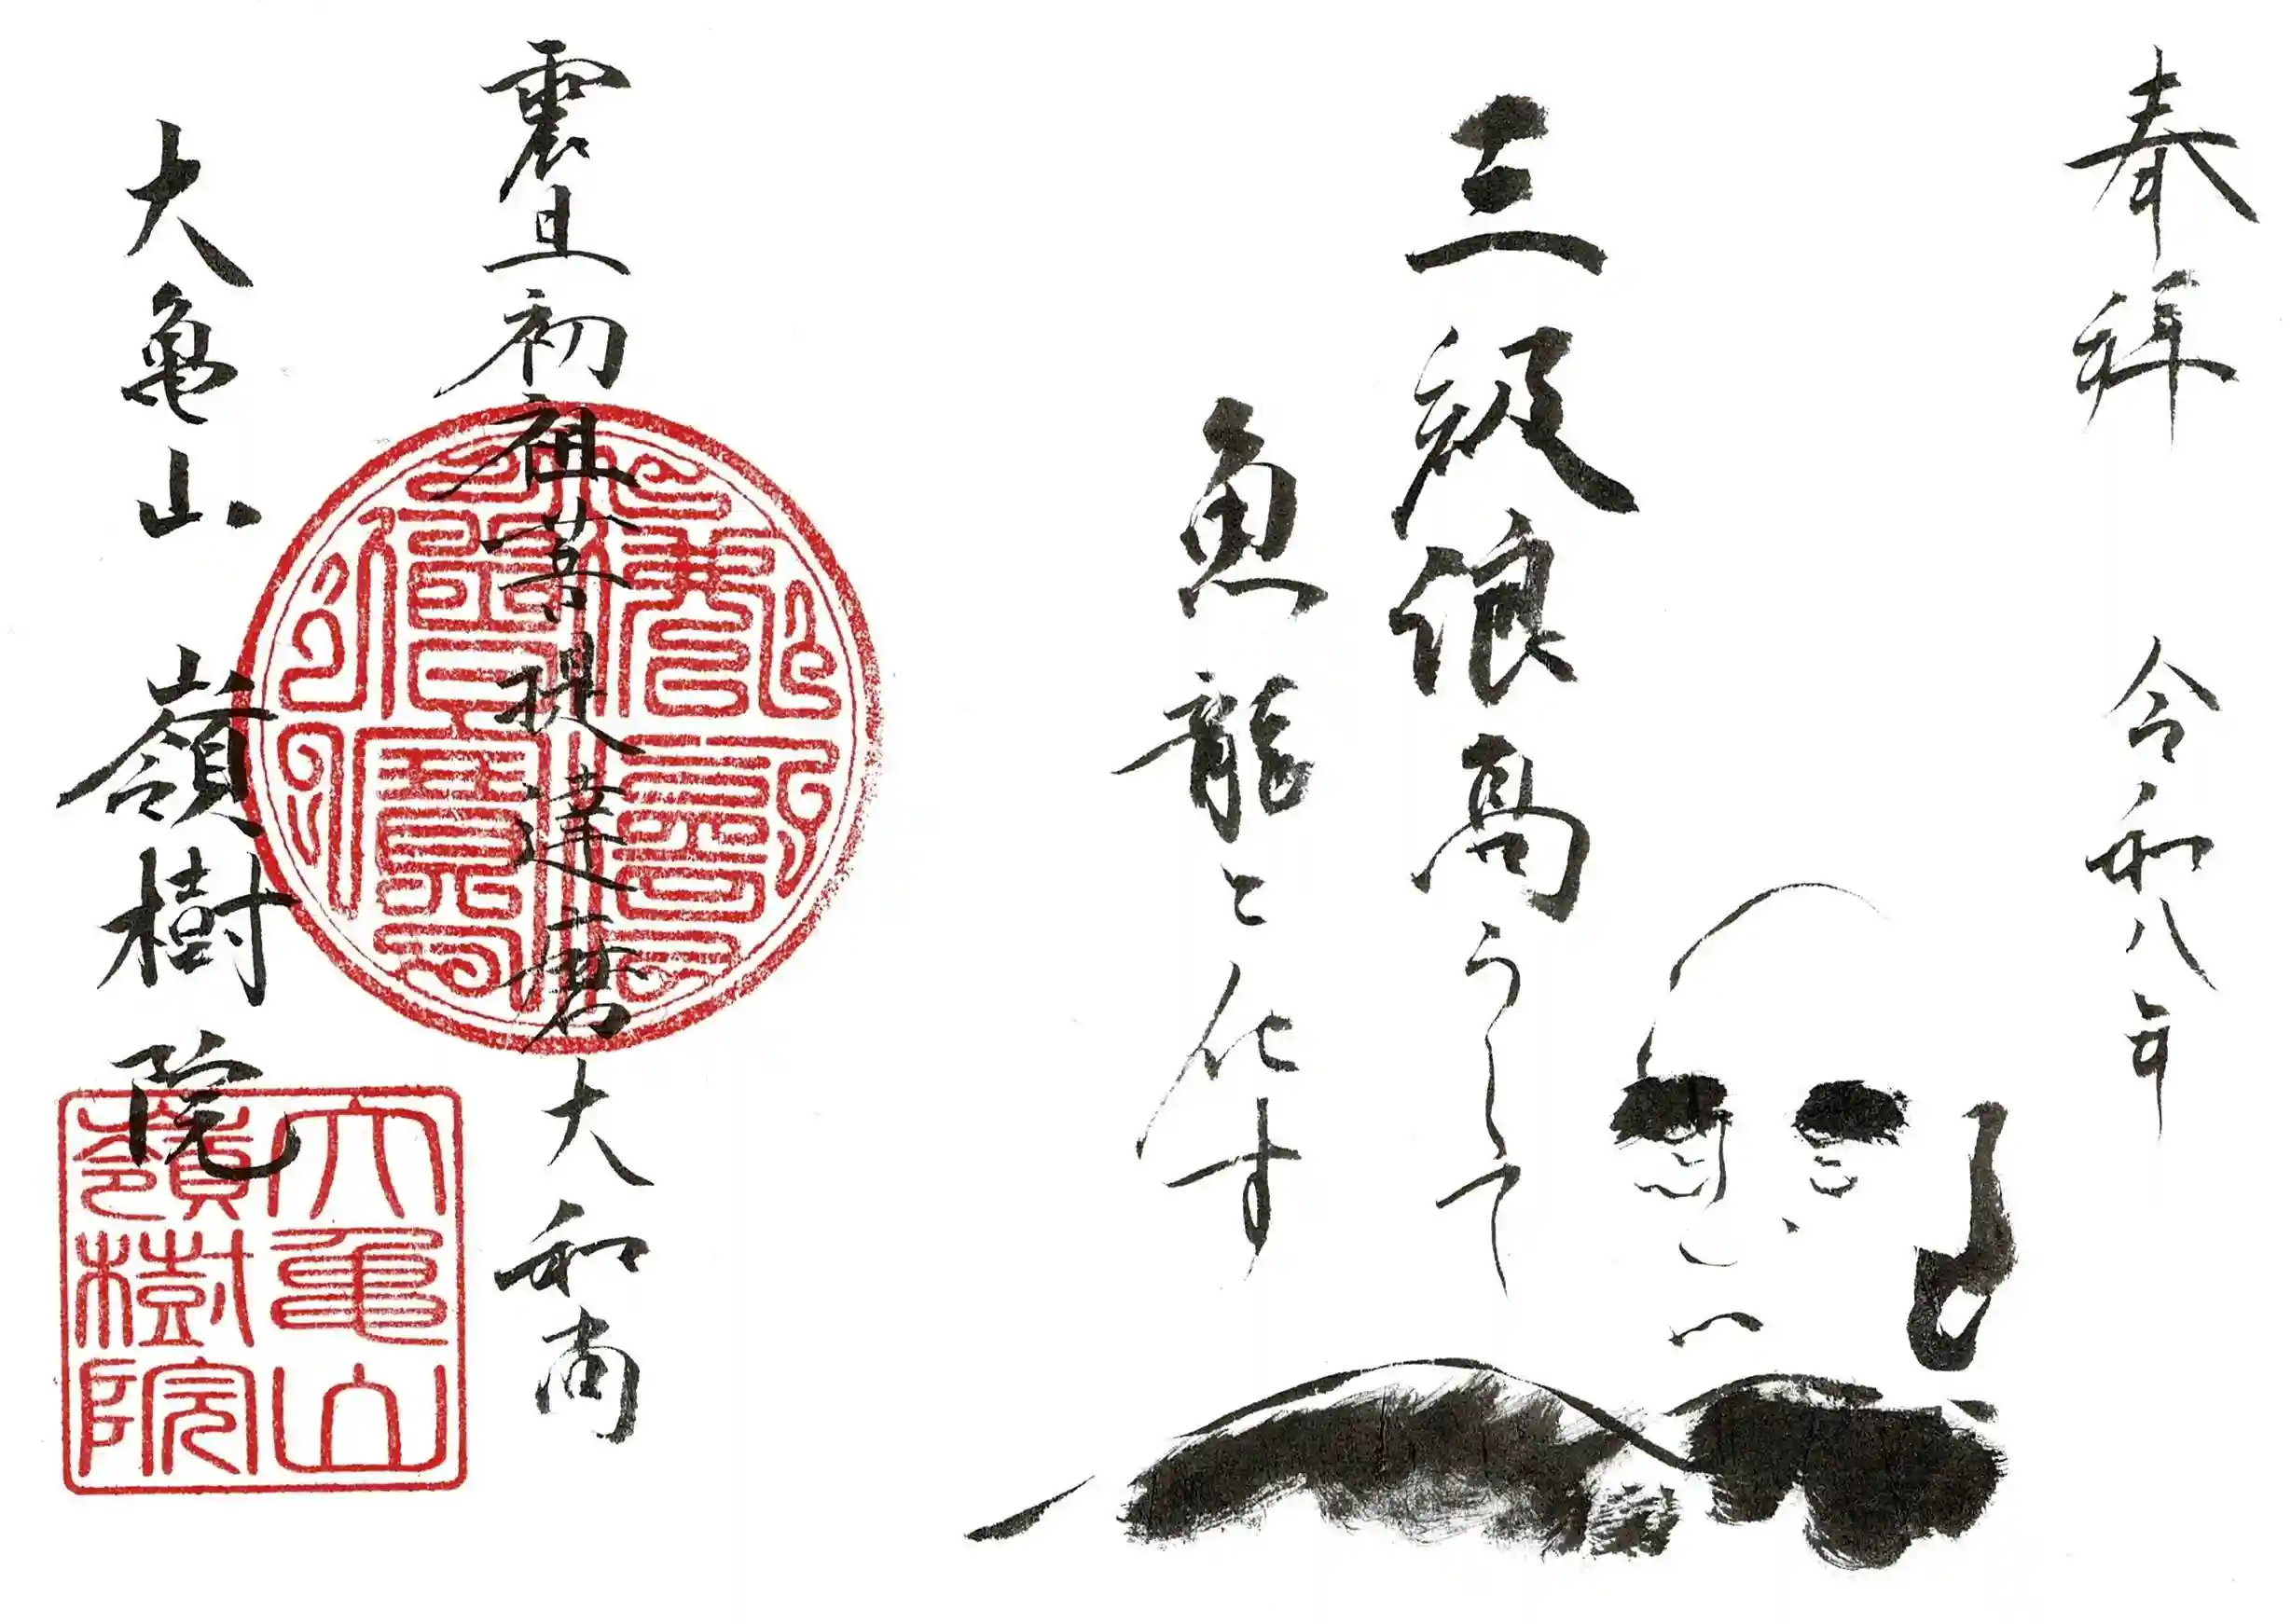 奉拝 令和八年
三級浪高うして
魚龍と化す
震旦初祖菩提達磨大和尚
大亀山 嶺樹院
大亀山
嶺樹院
佛法僧寶